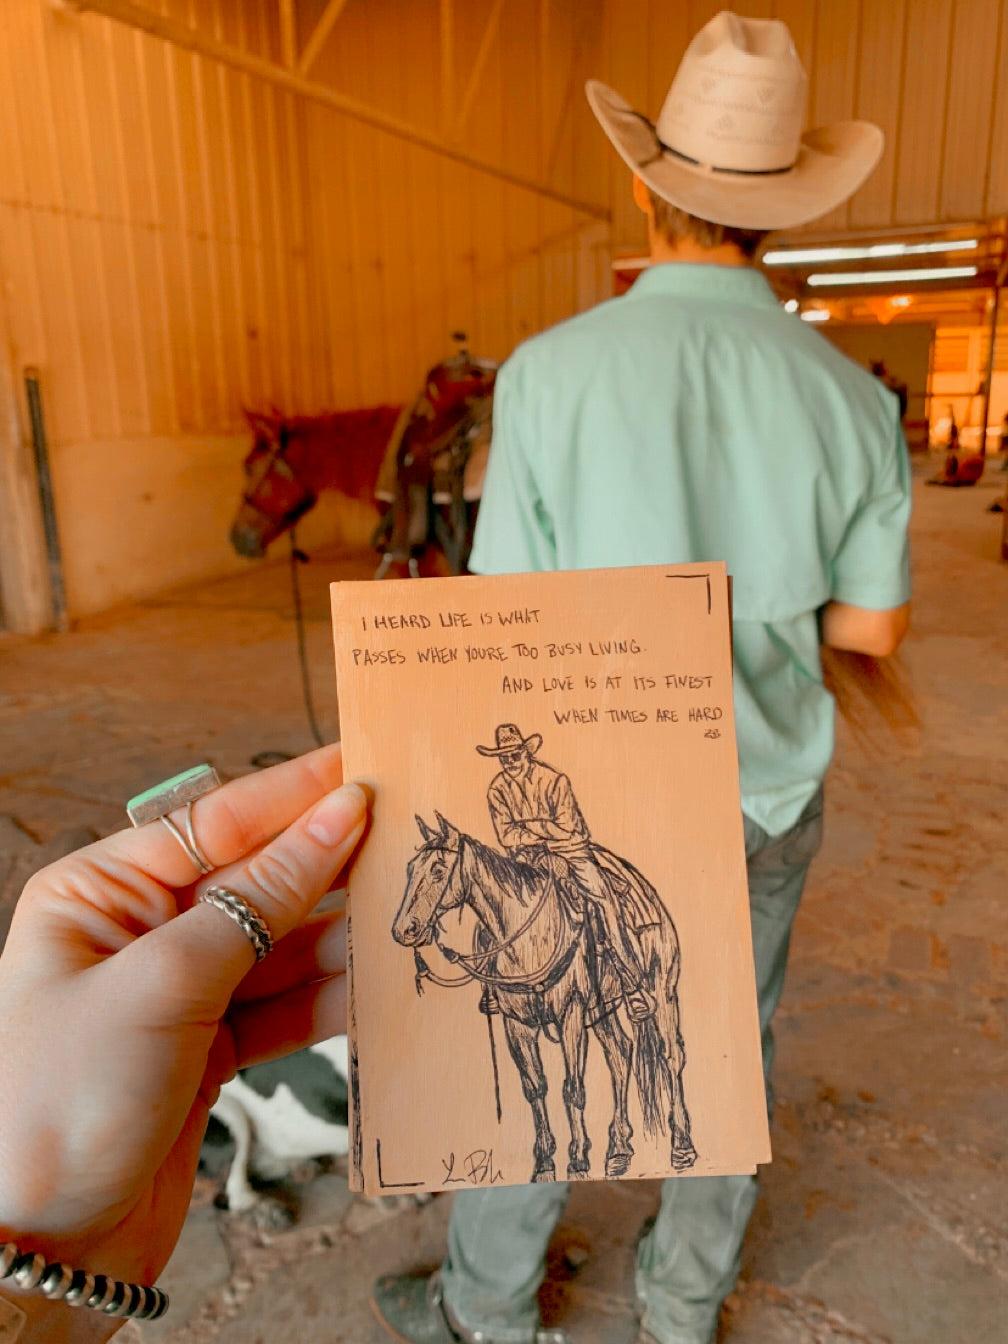 I HEARD LIFE IS WHAT
PASSES WHEN YOURE TOO BUSY LIVING.
AND LOVE IS AT ITS FINEST
WHEN TIMES ARE HARD